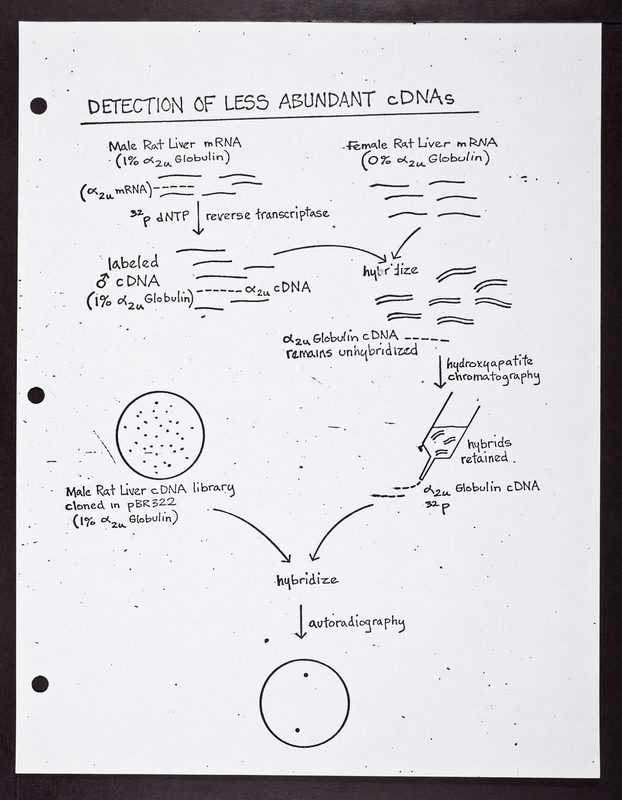 DETECTION OF LESS ABUNDANT cDNAs
Male Rat Liver mRNA
(1% α2u Globulin)
Female Rat Liver mRNA
(0% α2u Globulin)
(α2u mRNA)
32P dNTP
reverse transcriptase
labeled
♂ cDNA
(1% α2u Globulin)
α2u cDNA
hybridize
α2u Globulin cDNA
remains unhybridized
hydroxyapatite
chromatography
hybrids
retained.
α2u Globulin cDNA
32P
Male Rat Liver cDNA library
cloned in pBR322
(1% α2u Globulin)
hybridize
autoradiography